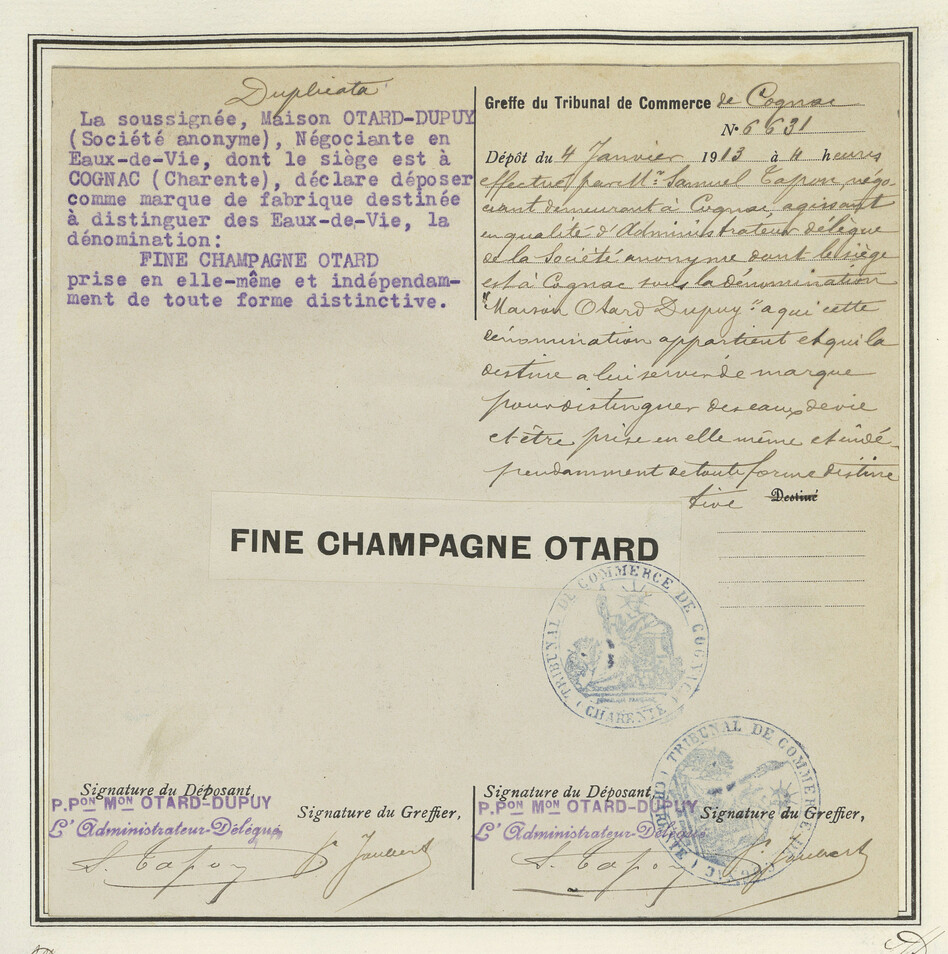 Duplicata
La soussignée, Maison OTARD-DUPUY
(Société anonyme), Négociante en
Eaux-de-Vie, dont le siège est à
COGNAC (Charente), déclare déposer
comme marque de fabrique destinée
à distinguer des Eaux-de-Vie, la
dénomination:
FINE CHAMPAGNE OTARD
prise en elle-même et indépendam-
ment de toute forme distinctive.
Greffe du Tribunal de Commerce de Cognac
N° 6631
Dépôt du 4 Janvier 1913 à 4 heures
effectué par Mr Samuel Tapon négo-
ciant demeurant à Cognac agissant
en qualité d'Administrateur délégué
de la Société anonyme dont le siège
est à Cognac sous la dénomination
"Maison Otard Dupuy" a qui cette
dénomination appartient et qui la
destine a lui servir de marque
pour distinguer des eaux de vie
et être prise en elle même et indé-
pendamment de toute forme distinc
tive Destiné
FINE CHAMPAGNE OTARD
TRIBUNAL DE COMMERCE DE COGNAC
(CHARENTE)
TRIBUNAL DE COMMERCE DE COGNAC
(CHARENTE)
Signature du Déposant
P. Pon Mon OTARD-DUPUY
L'Administrateur-Délégué
Signature du Greffier,
S. Tapon
Joubert
Signature du Déposant,
P. Pon Mon OTARD-DUPUY
L'Administrateur-Délégué
Signature du Greffier,
S. Tapon
Joubert